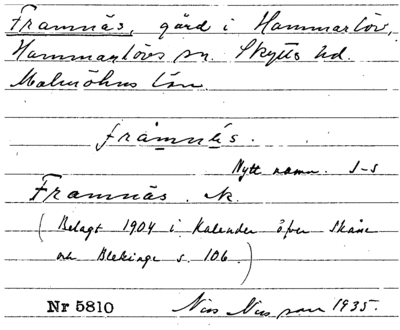 Framnäs, gård i Hammarlöv,
Hammarlövs sn. Skytts hd.
Malmöhus län.
främnäs.
Nytt namn. S-s
Framnäs. Nr.
(Belagt 1904 i Kalender öfver Skåne
och Blekinge s. 106.)
Nr 5810 Nils Nilsson 1935.